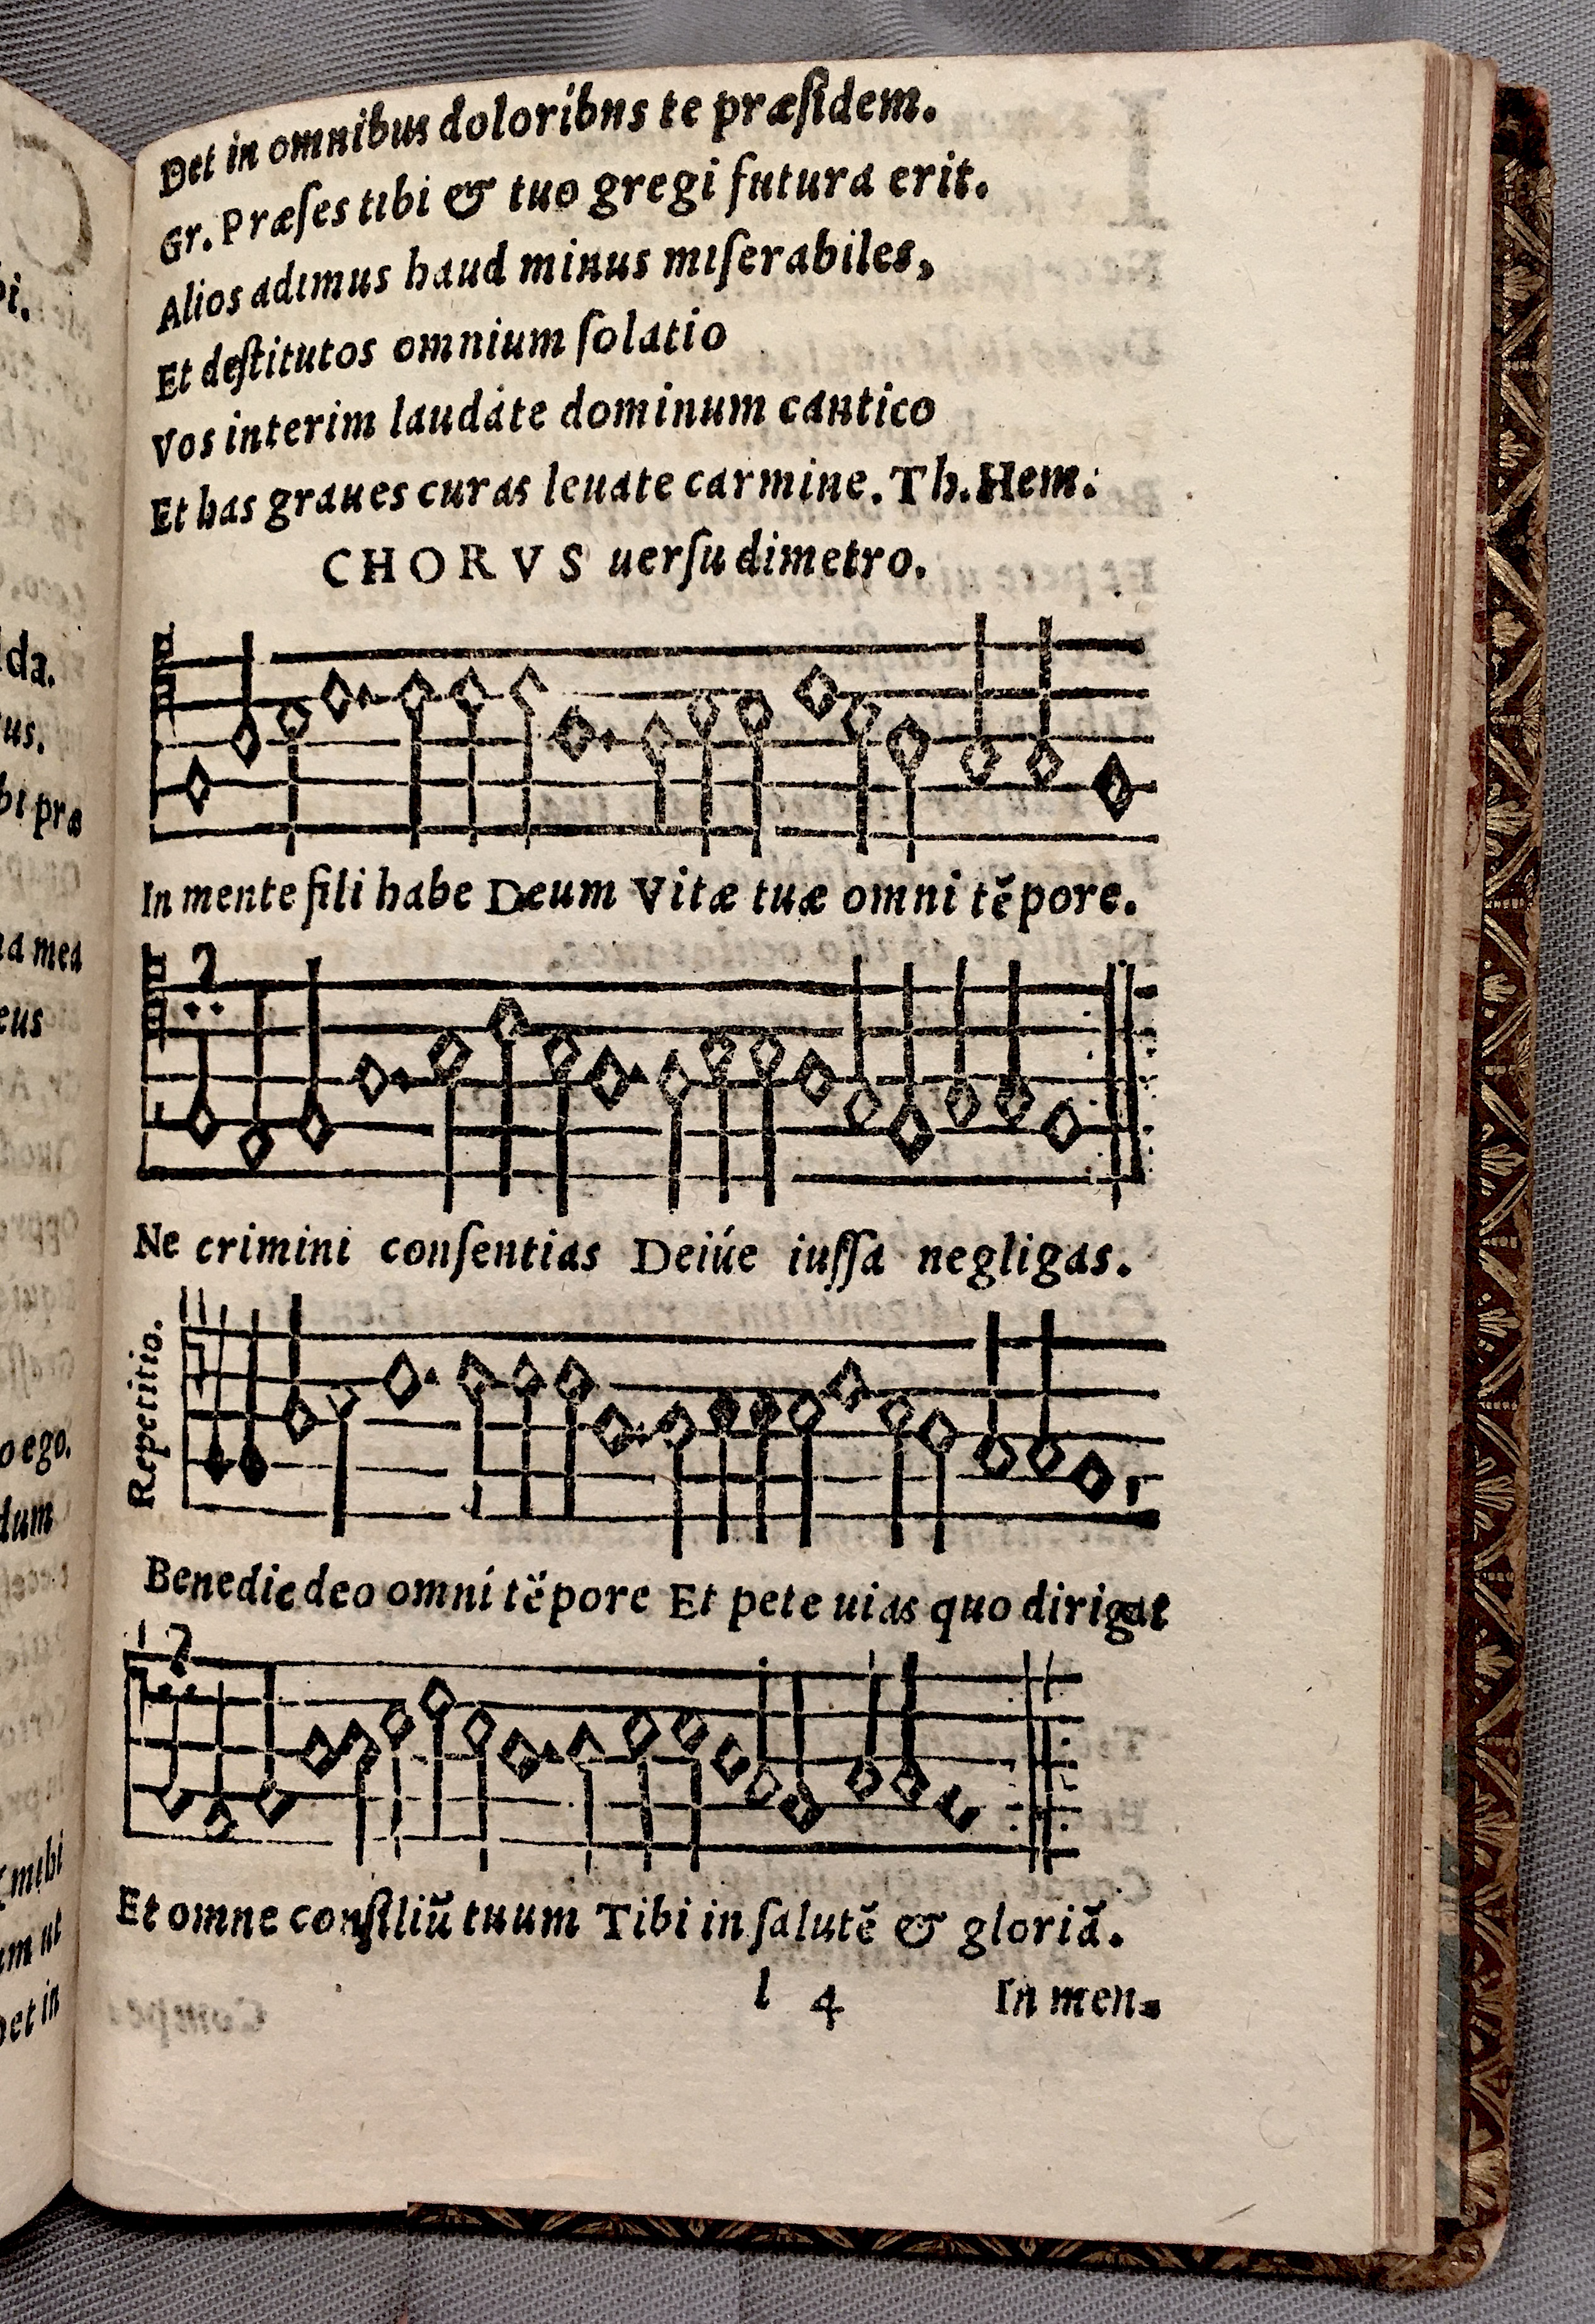 Det in omnibus doloribns te præſidem.
Gr. Præſes tibi & tuo gregi futura erit.
Alios adimus haud minus miſerabiles,
Et deſtitutos omnium ſolatio
Vos interim laudate dominum cantico
Et has graues curas leuate carmine. Th. Hem:
CHORVS uerſu dimetro.
In mente fili habe Deum Vitæ tuæ omni tẽpore.
Ne crimini conſentias Deiúe iuſſa negligas.
Repetitio.
Benedic deo omni tẽpore Et pete uias quo dirigat
Et omne conſiliũ tuum Tibi in ſalutẽ & gloriã.
l 4 In men=
bi.
da.
tus.
bi præ
na mea
eus
o ego.
dum
mihi
um ut
et in